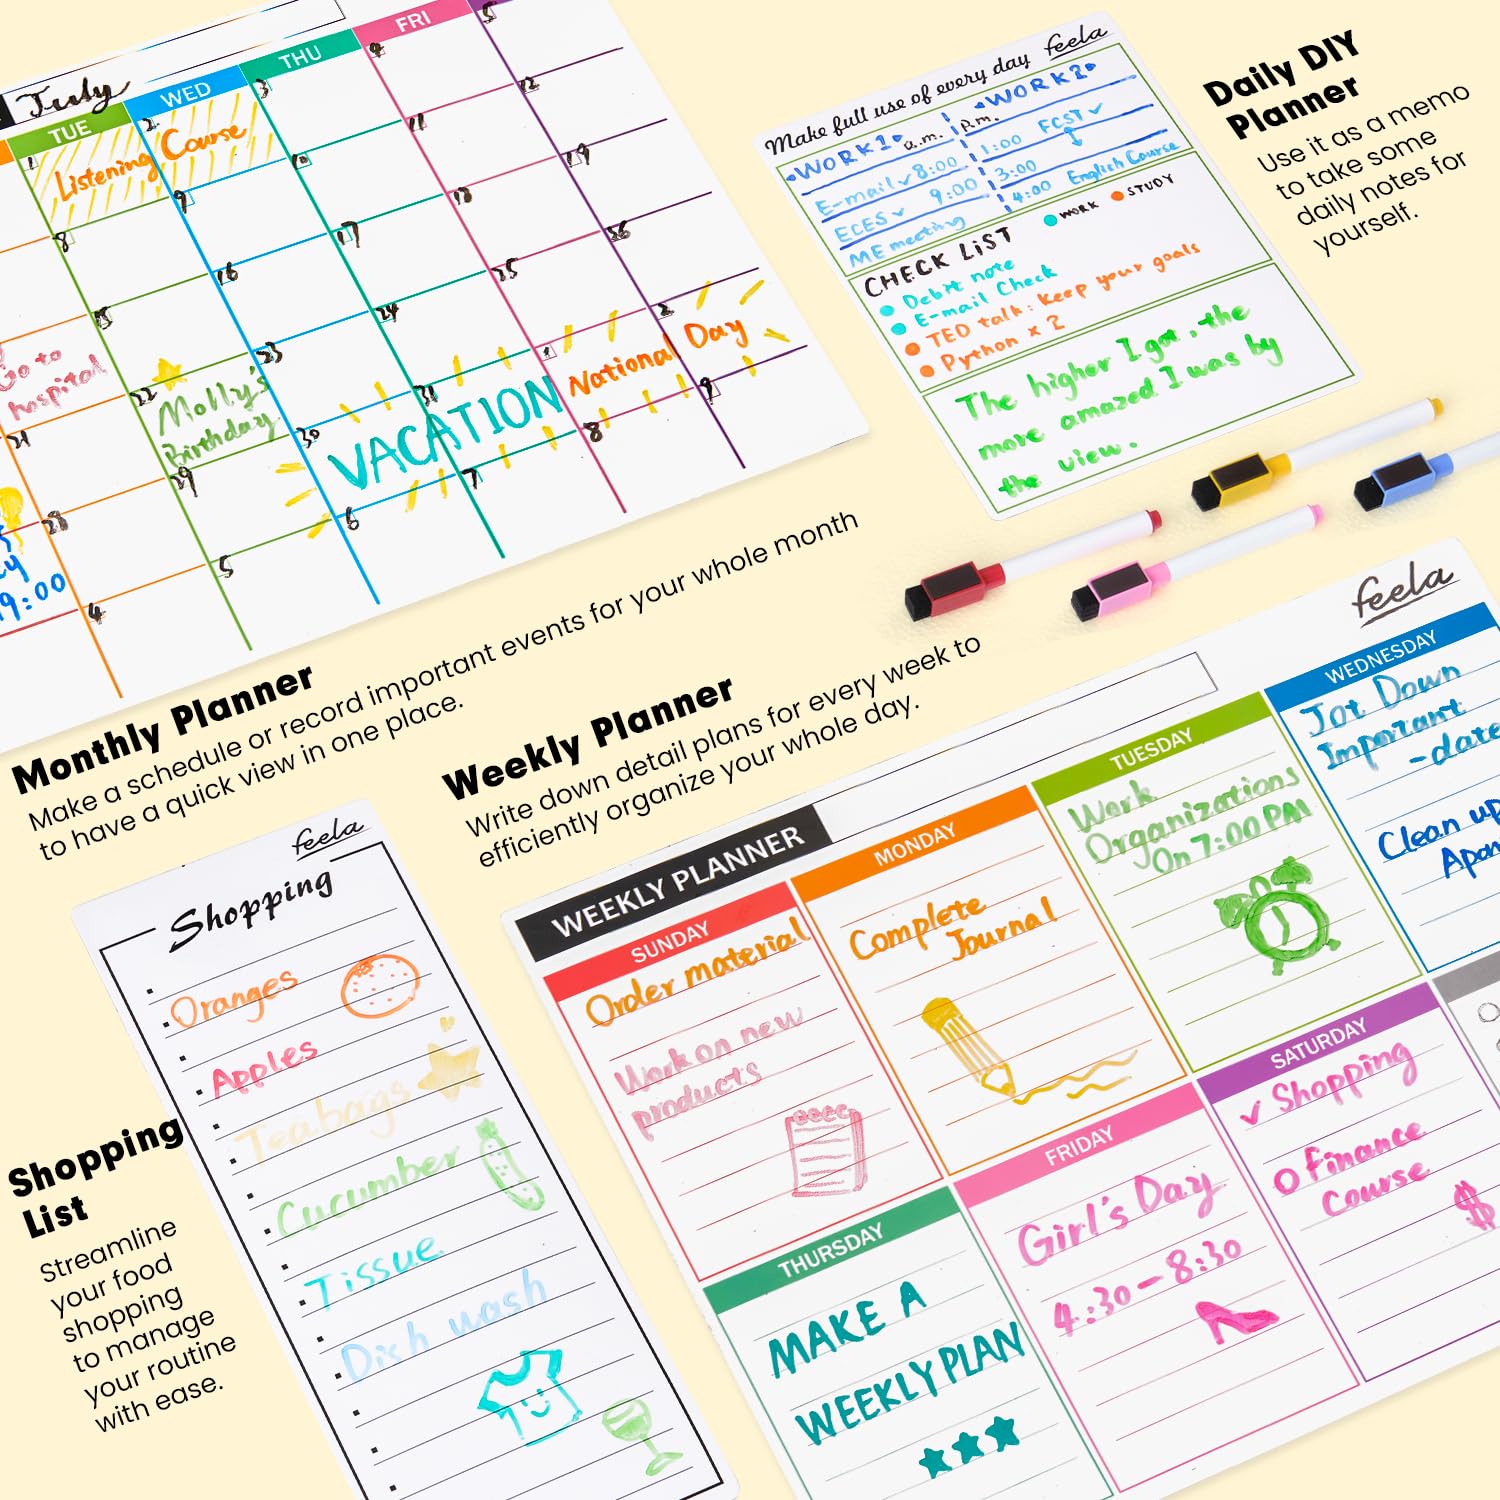 July
TUE
WED
THU
FRI
1
2
3
4
5
Listening Course
8
9
10
11
12
15
16
17
18
19
Go to
hospital
22
23
24
25
26
Molly's
Birthday
29
30
31
1
2
VACATION
National Day
21
28
9:00
4
5
6
7
8
9
Monthly Planner
Make a schedule or record important events for your whole month
to have a quick view in one place.
feela
Make full use of every day
WORK1
a.m.
E-mail ✓ 8:00
ECES ✓ 9:00
ME meeting
WORK2
p.m.
1:00 FCST ✓
3:00
4:00 English Course
CHECK LIST
WORK
STUDY
Debit note
E-mail Check
TED talk: Keep your goals
Python x 2
The higher I got, the
more amazed I was by
the view.
Daily DIY
Planner
Use it as a memo
to take some
daily notes for
yourself.
Weekly Planner
Write down detail plans for every week to
efficiently organize your whole day.
feela
WEEKLY PLANNER
SUNDAY
Order material
Work on new
products
MONDAY
Complete
Journal
TUESDAY
Work
Organizations
On 7:00 PM
WEDNESDAY
Jot Down
Important
-date
Clean up
THURSDAY
MAKE A
WEEKLY PLAN
FRIDAY
Girl's Day
4:30-8:30
SATURDAY
✓ Shopping
O Finance
Course
$
Shopping
List
Streamline
your food
shopping
to manage
your routine
with ease.
feela
Shopping
Oranges
Apples
Teabags
Cucumber
Tissue
Dish wash